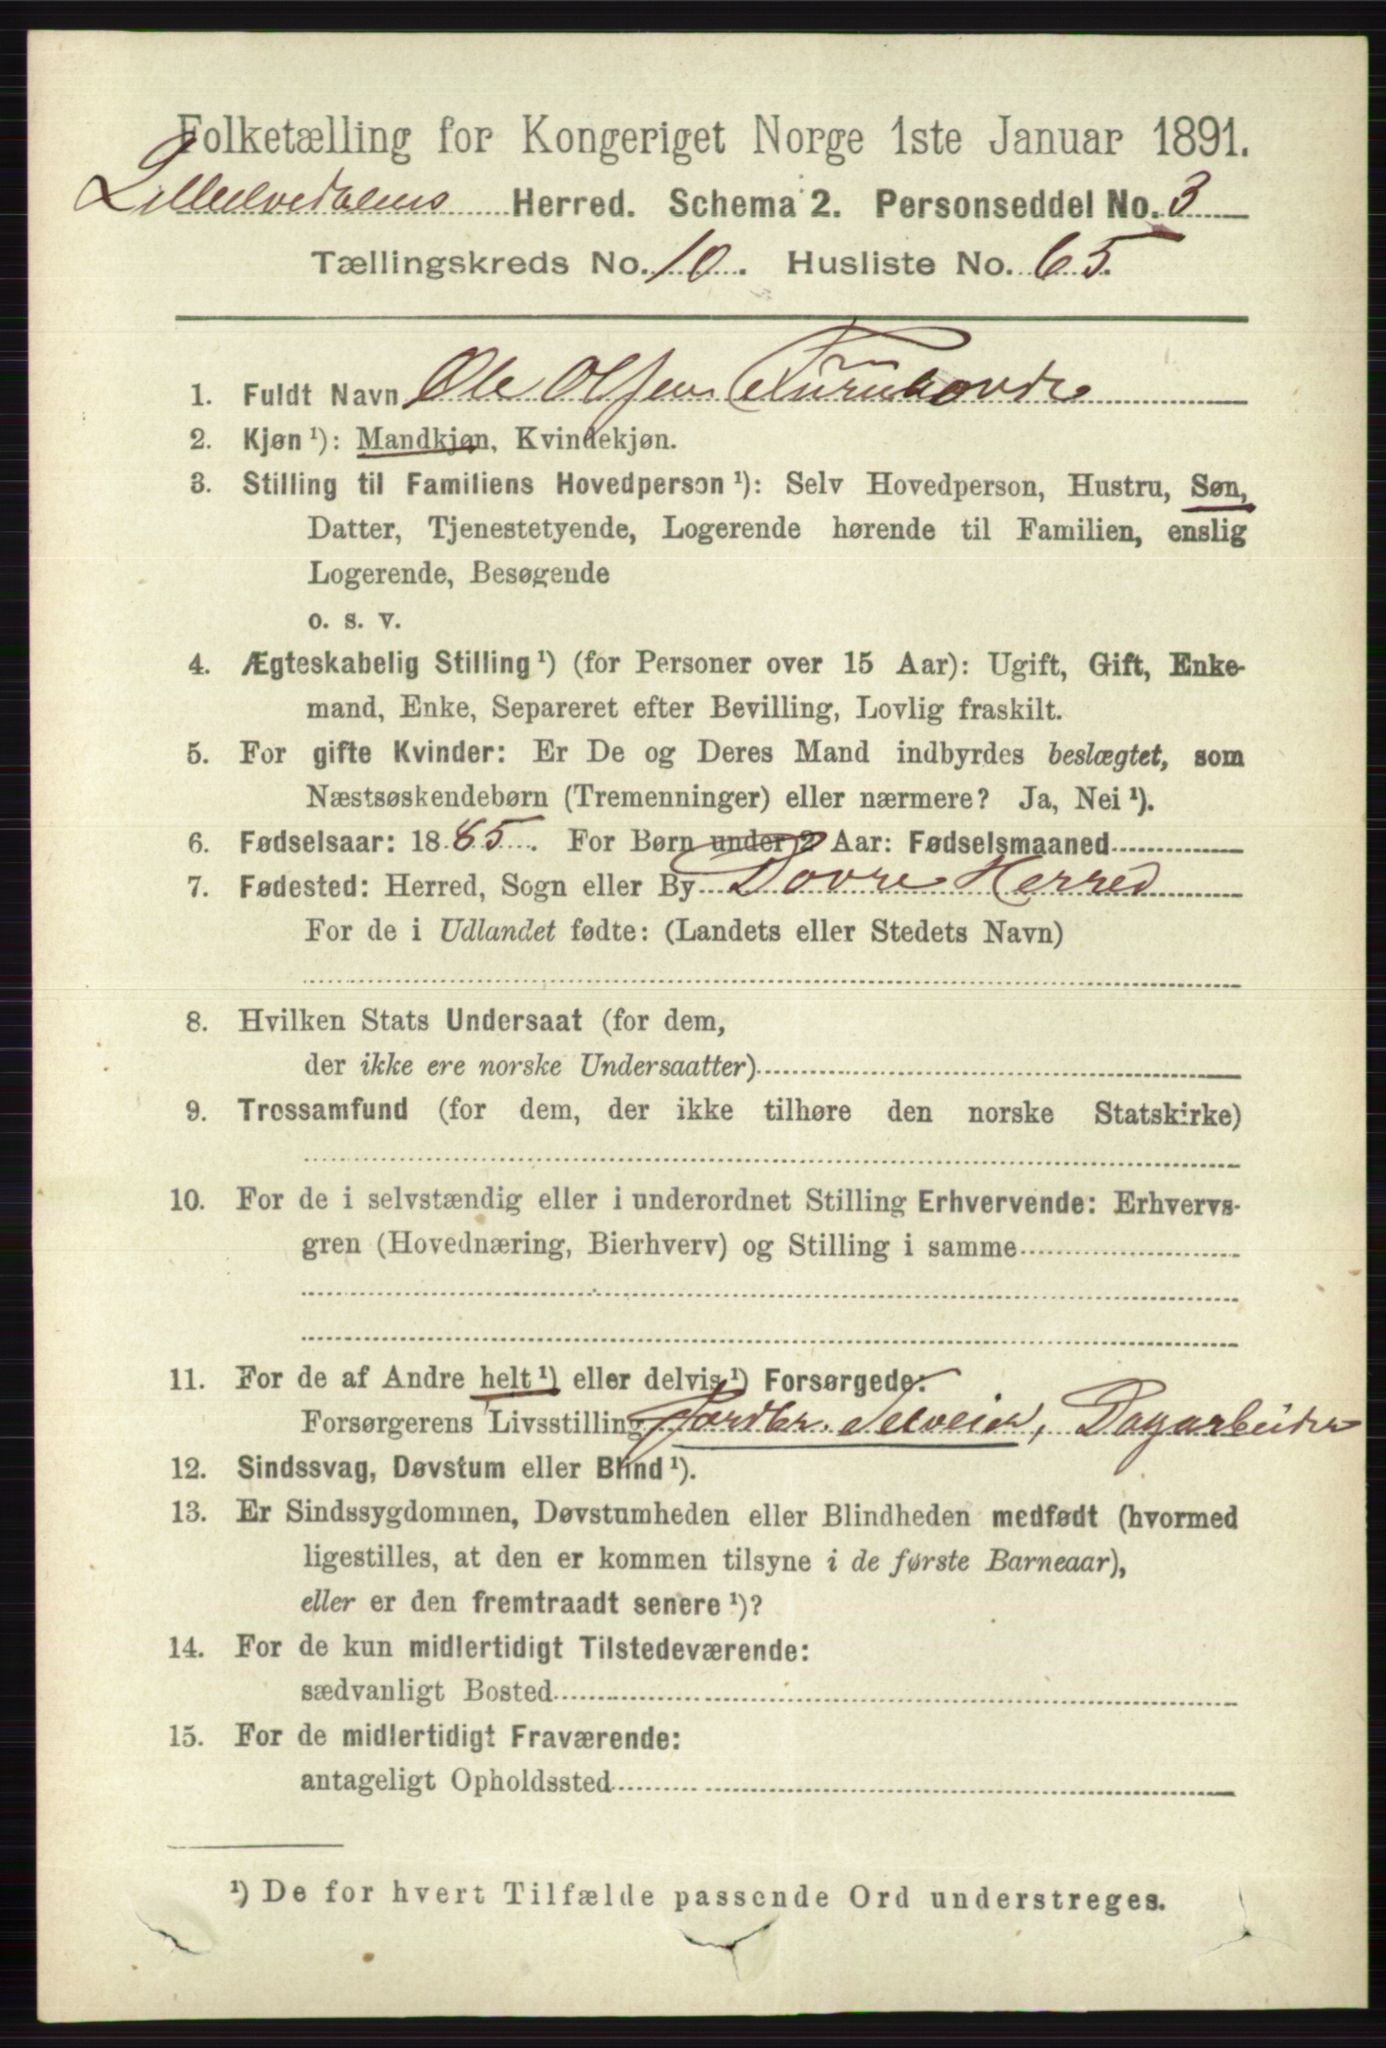 Folketælling for Kongeriget Norge 1ste Januar 1891.
Lilleelvedalens Herred. Schema 2. Personseddel No. 3
Tællingskreds No. 10. Husliste No. 65.
1. Fuldt Navn Ole Olsen Furuhovde
2. Kjøn ¹): Mandkjøn, Kvindekjøn.
3. Stilling til Familiens Hovedperson ¹): Selv Hovedperson, Hustru, Søn,
Datter, Tjenestetyende, Logerende hørende til Familien, enslig
Logerende, Besøgende
o. s. v.
4. Ægteskabelig Stilling ¹) (for Personer over 15 Aar): Ugift, Gift, Enke-
mand, Enke, Separeret efter Bevilling, Lovlig fraskilt.
5. For gifte Kvinder: Er De og Deres Mand indbyrdes beslægtet, som
Næstsøskendebørn (Tremenninger) eller nærmere? Ja, Nei ¹).
6. Fødselsaar: 1885. For Børn under 2 Aar: Fødselsmaaned
7. Fødested: Herred, Sogn eller By Dovre Herred
For de i Udlandet fødte: (Landets eller Stedets Navn)
8. Hvilken Stats Undersaat (for dem,
der ikke ere norske Undersaatter)
9. Trossamfund (for dem, der ikke tilhøre den norske Statskirke)
10. For de i selvstændig eller i underordnet Stilling Erhvervende: Erhvervs-
gren (Hovednæring, Bierhverv) og Stilling i samme
11. For de af Andre helt ¹) eller delvis ¹) Forsørgede:
Forsørgerens Livsstilling Jordbr. Selveier, Dagarbeider
12. Sindssvag, Døvstum eller Blind ¹).
13. Er Sindssygdommen, Døvstumheden eller Blindheden medfødt (hvormed
ligestilles, at den er kommen tilsyne i de første Barneaar),
eller er den fremtraadt senere ¹)?
14. For de kun midlertidigt Tilstedeværende:
sædvanligt Bosted
15. For de midlertidigt Fraværende:
antageligt Opholdssted
¹) De for hvert Tilfælde passende Ord understreges.